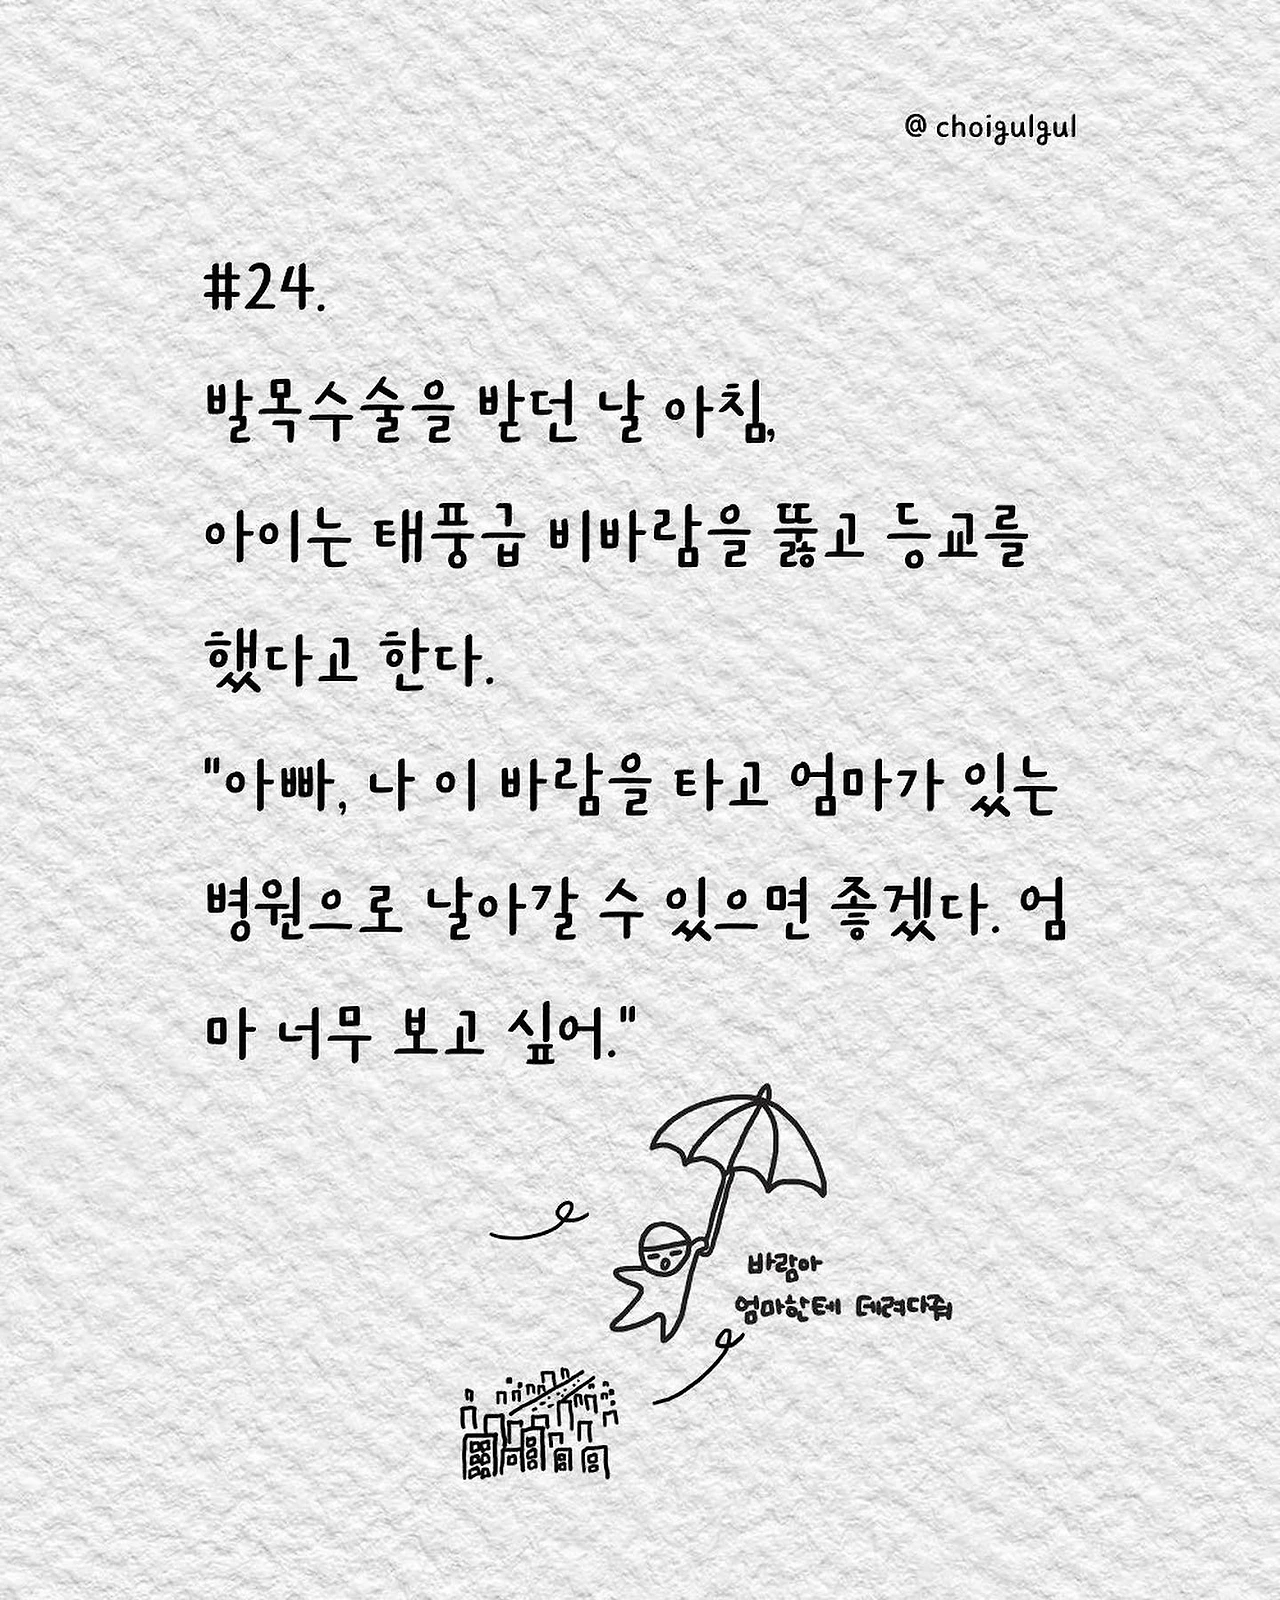 @ choigulgul
#24.
발목수술을 받던 날 아침,
아이는 태풍급 비바람을 뚫고 등교를
했다고 한다.
"아빠, 나 이 바람을 타고 엄마가 있는
병원으로 날아갈 수 있으면 좋겠다. 엄
마 너무 보고 싶어."
바람아
엄마한테 데려다줘